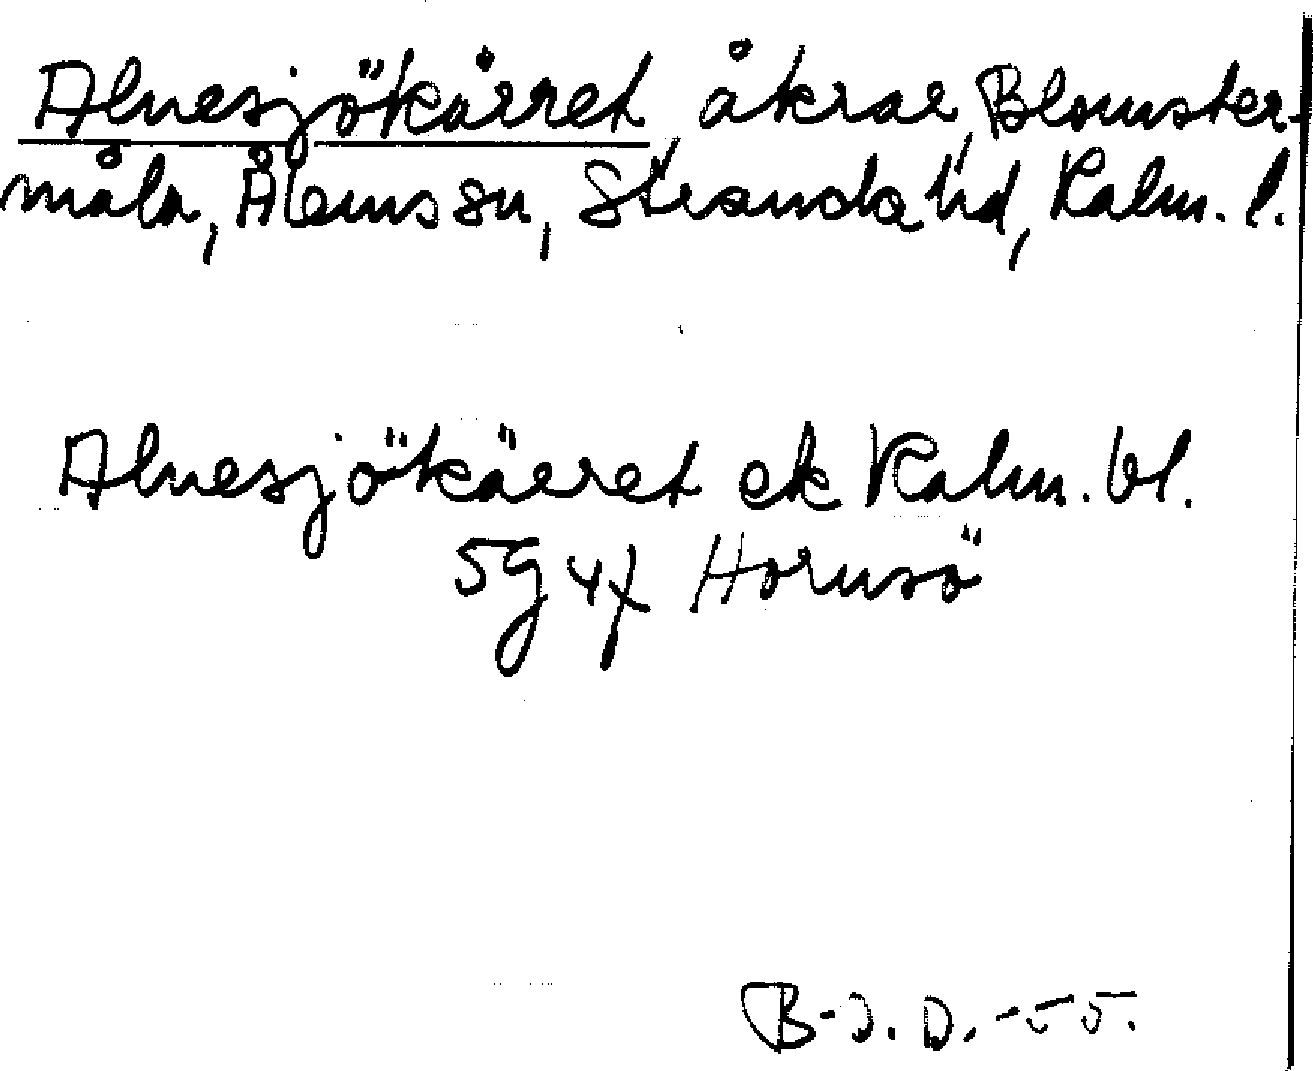 Alnesjökärret åkrar, Blomster-
måla, Ålems sn, Stranda hd, Kalm. l.
Alnesjökärret ek Kalm. bl.
5g 4f Hornsö
B-J. D. -55.